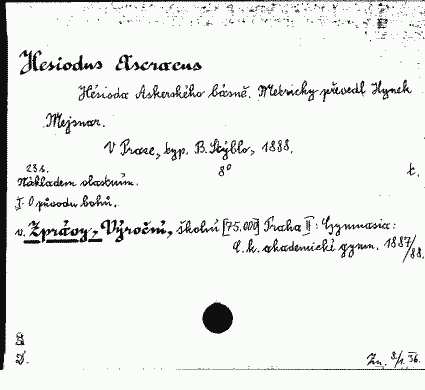 Hesiodus Ascraeus
Hésioda Askerského básně. Metricky převedl Hynek
Mejsnar.
V Praze, typ. B. Stýblo, 1888.
23 s. 8° t.
Nákladem vlastním.
I. O původu bohů.
v. Zprávy, Výroční, školní [75.000] Praha II: Gymnasia:
C. k. akademické gymn. 1887/88.
Zn. 36.